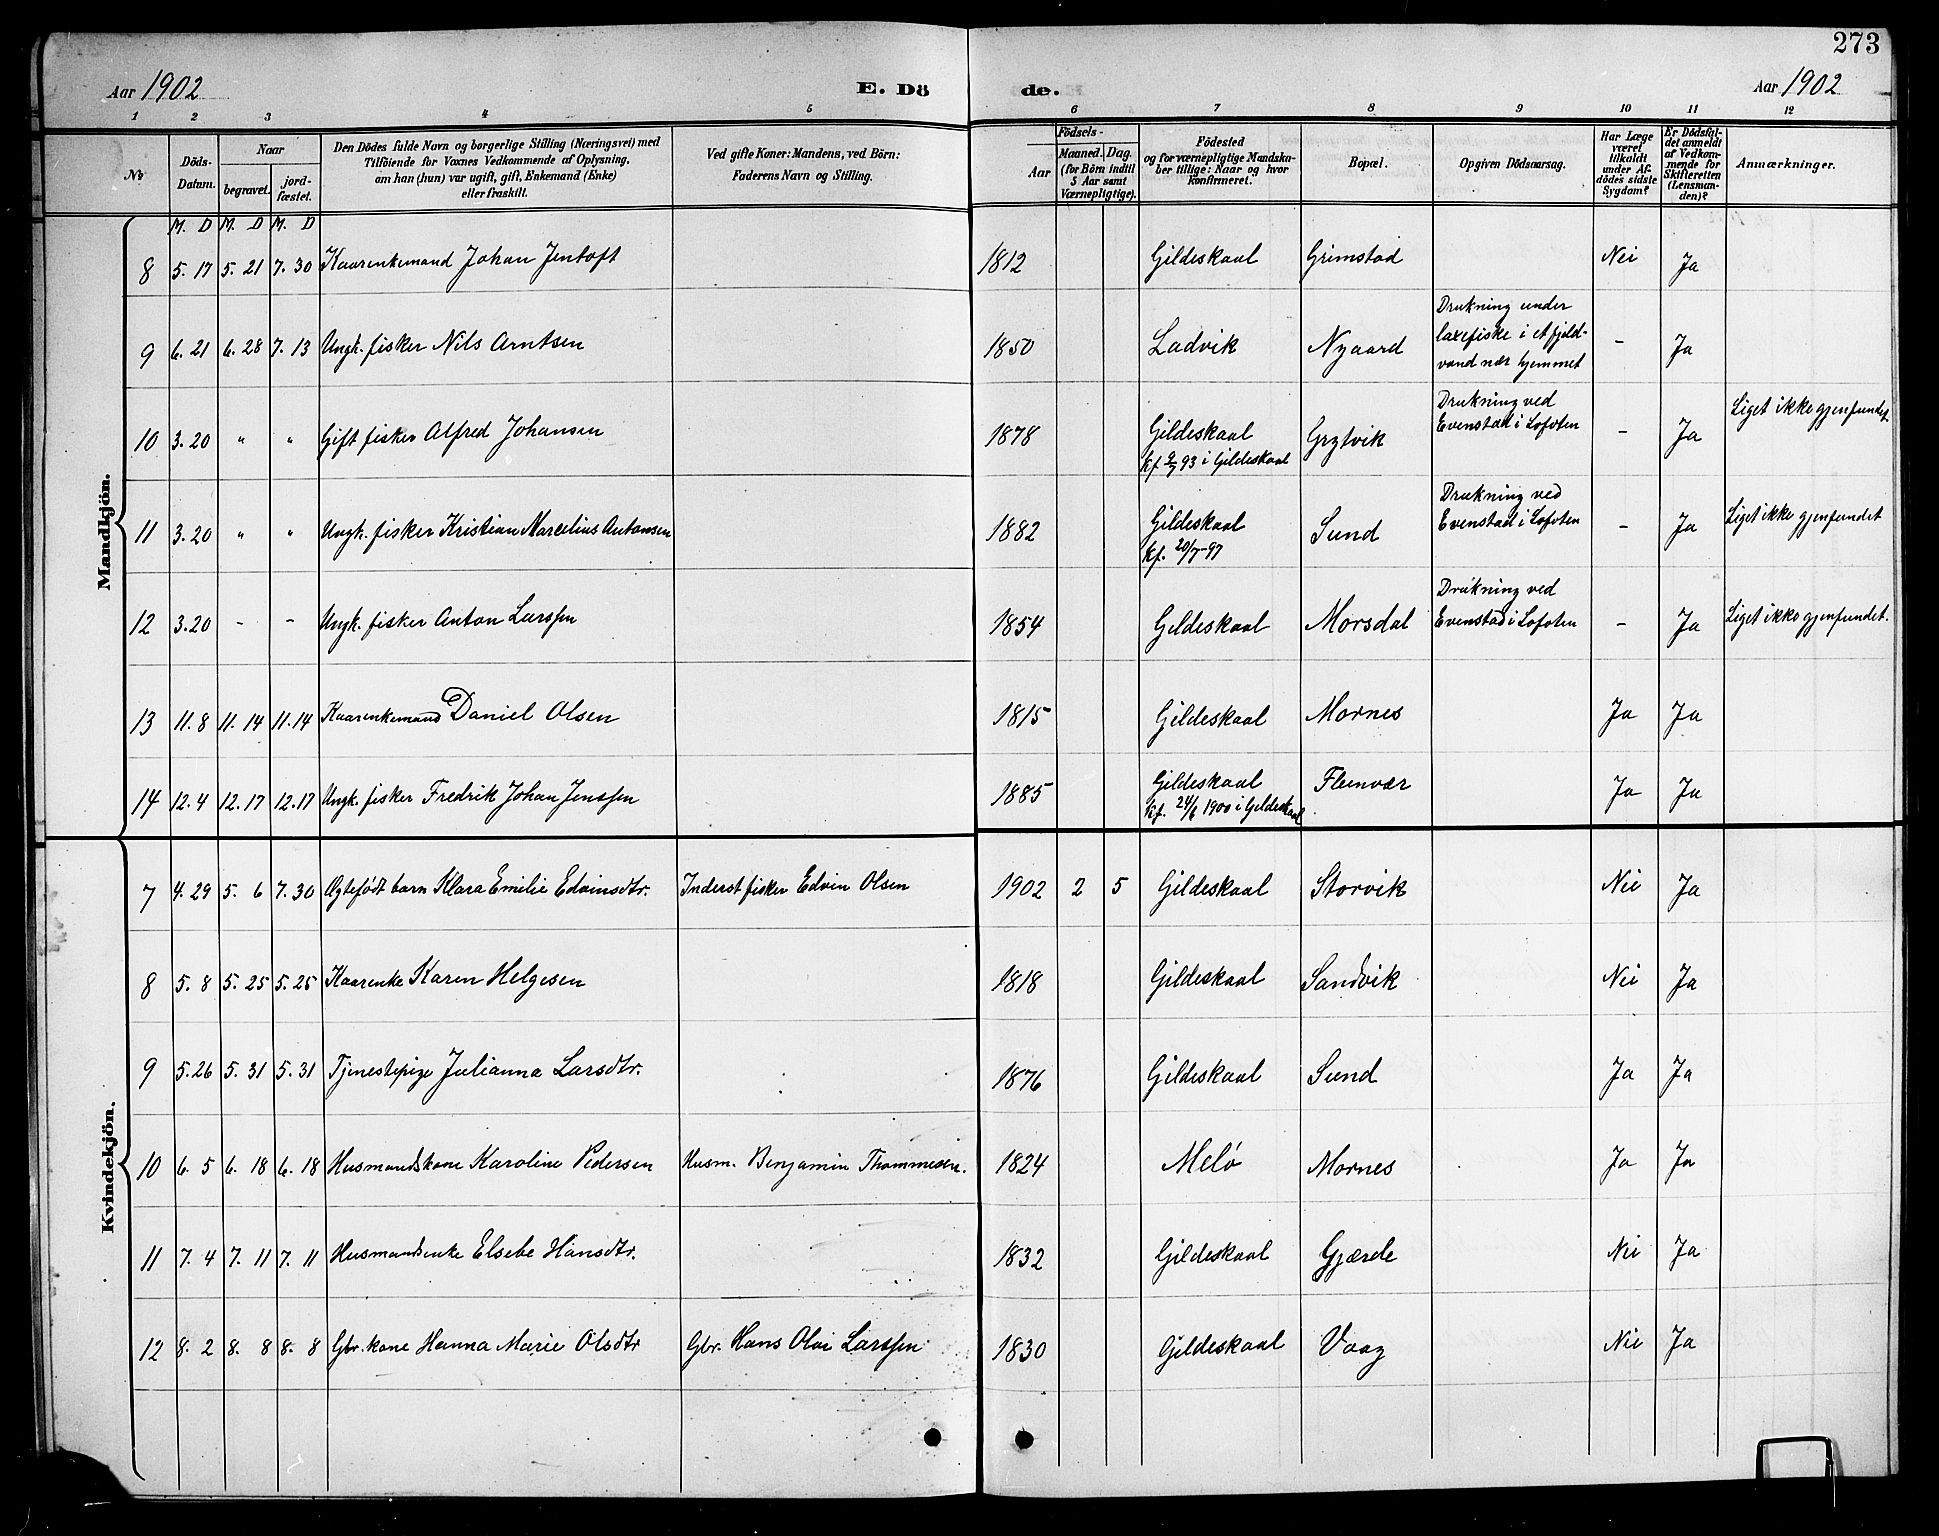 273
Aar 1902 E. Dö de. Aar 1902
1 2 3 4 5 6 7 8 9 10 11 12
No
Döds-
Datum.
Naar
begravet.
jord-
fæstet.
Den Dödes fulde Navn og borgerlige Stilling (Næringsvei) med
Tilföiende for Voxnes Vedkommende af Oplysning,
om han (hun) var ugift, gift, Enkemand (Enke)
eller fraskilt.
Ved gifte Koner: Mandens, ved Börn:
Faderens Navn og Stilling.
Födsels-
Aar
Maaned. Dag.
(for Börn indtil
5 Aar samt
Værnepligtige).
Födested
og for værnepligtige Mandskn-
ber tillige: Naar og hvor
konfirmeret.
Bopæl.
Opgiven Dödsaarsag.
Har Læge
været
tilkaldt
under Af-
dödes sidste
Sygdom?
Er Dödsfal-
det anmeldt
af Vedkom-
mende for
Skifteretten
(Lensman-
den)?
Anmærkninger.
M. D M. D M. D
Mandkjön.
8 5. 17 5. 21 7. 30 Kaarenkemand Johan Jentoft 1812 Gildeskaal Grimstad Nei Ja
9 6. 21 6. 28 7. 13 Ungk. fisker Nils Arntsen 1850 Ladvik Nyaard Drukning under
laxefiske i et fjeld-
vand nær hjemmet - Ja
10 3. 20 " " Gift fisker Alfred Johansen 1878 Gildeskaal
kf. 9/7 93 i Gildeskaal Grytvik Drukning ved
Evenstad i Lofoten - Ja Liget ikke gjenfundet.
11 3. 20 " " Ungk. fisker Kristian Marcelius Antonsen 1882 Gildeskaal
kf. 20/7-97 Sund Drukning ved
Evenstad i Lofoten - Ja Liget ikke gjenfundet
12 3. 20 - - Ungk. fisker Anton Larssen 1854 Gildeskaal Morsdal Drukning ved
Evenstad i Lofoten - Ja Liget ikke gjenfundet.
13 11. 8 11. 14 11. 14 Kaarenkemand Daniel Olsen 1815 Gildeskaal Mornes Ja Ja
14 12. 4 12. 17 12. 17 Ungk. fisker Fredrik Johan Jenssen 1885 Gildeskaal
kf. 24/6 1900 i Gildeskaal Fleinvær Ja Ja
Kvindekjön.
7 4. 29 5. 6 7. 30 Ægtefødt barn Klara Emilie Edvinsdtr. Inderst fisker Edvin Olsen 1902 2 5 Gildeskaal Storvik Nei Ja
8 5. 8 5. 25 5. 25 Kaarenke Karen Helgesen 1818 Gildeskaal Sandvik Nei Ja
9 5. 26 5. 31 5. 31 Tjenestepige Julianna Larsdtr. 1876 Gildeskaal Sund Ja Ja
10 6. 5 6. 18 6. 18 Husmandskone Karoline Pedersen Husm. Benjamin Thommesen. 1824 Melø Mornes Ja Ja
11 7. 4 7. 11 7. 11 Husmandsenke Elsebe Hansdtr. 1832 Gildeskaal Gjærde Nei Ja
12 8. 2 8. 8 8. 8 Gbr. kone Hanna Marie Olsdtr Gbr. Hans Olai Larssen 1830 Gildeskaal Vaag Nei Ja